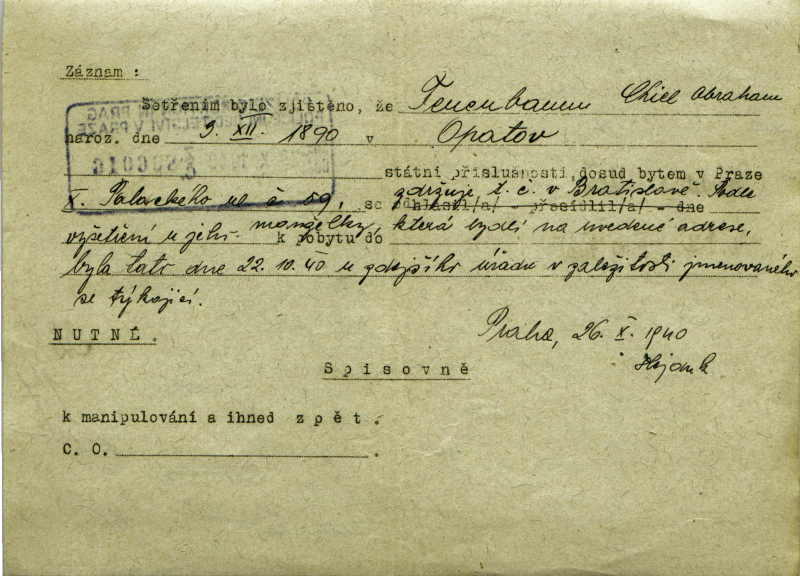 Záznam :
Šetřením bylo zjištěno, že Tenenbaum Chiel Abraham
naroz. dne 3. XII. 1890 v Opatov
státní příslušnosti, dosud bytem v Praze
X. Palackého ul č 59, se zdržuje t. č. v Bratislavě. Podle
odhlásil/a/ - přesídlil/a/ - dne
vyšetření u jeho manželky, která bydlí na uvedené adrese,
k pobytu do
byla tato dne 22. 10. 40 u zdejšího úřadu v záležitosti jmenovaného
se týkající.
Praha, 26. X. 1940
NUTNÉ.
Spisovně
k manipulování a ihned zpět.
C. O. .